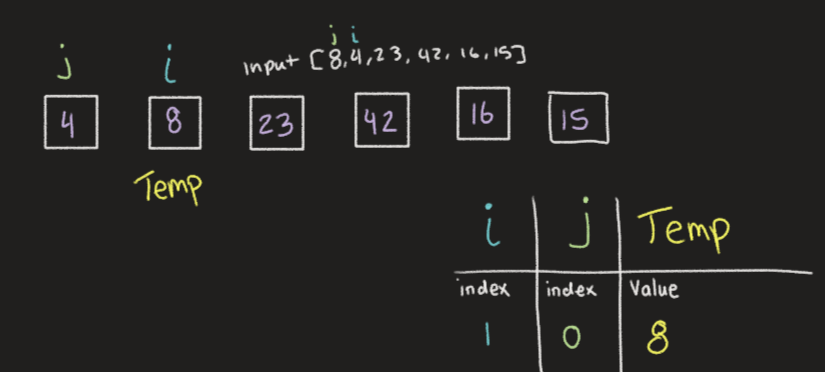 j i
j i input [8,4,23,42,16,15]
4 8 23 42 16 15
Temp
i j Temp
index index Value
1 0 8